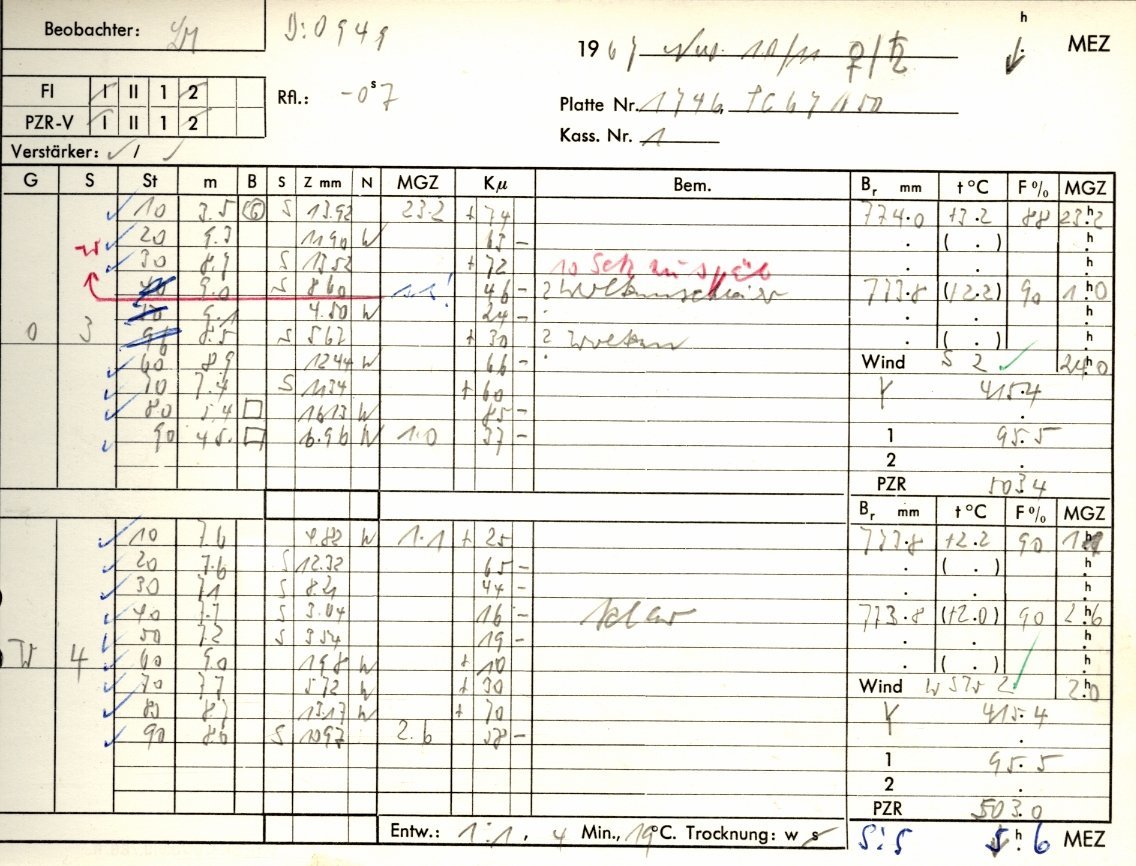 Beobachter:
D: 0949
h
MEZ
1967 Nov. 10/11 ♀/♄
FI I II 1 2
PZR-V I II 1 2
Rfl.: -0ˢ7
Platte Nr. 1746,
Kass. Nr. 1
Verstärker: ✓ / ✓
G S St m B S Z mm N MGZ Kμ Bem. Br mm t °C F % MGZ
10 3.5 S 13.92 23.2 + 74 774.0 +3.2 88 23.2
20 9.3 11.90 W 63 –
30 8.9 S 13.52 + 72
10 Sek zu spät
9.0 S 8.60 1.1! 46 – 773.8 (+2.2) 90 1.0
9.1 4.50 W 24 –
0 3 8.5 S 5.67 + 30 ? Wolken
60 8.9 12.44 W 66 – Wind S 2 ✓ 24.0
70 7.4 S 11.34 + 60 Y 415.4
80 5.4 □ 16.13 W 85 –
90 4.5 □ 6.96 W 1.0 37 – 1 95.5
2
PZR 503.4
Br mm t °C F % MGZ
10 7.6 4.82 W 1.1 + 25 773.8 +2.2 90
20 7.6 S 12.32 65 –
30 7.1 S 8.21 44 –
40 7.7 S 3.04 16 – klar 773.8 (+2.0) 90 2.6
50 7.2 S 3.54 19 –
W 4 60 9.0 1.98 W + 10
70 7.7 5.72 W + 30 Wind WSW 2 ✓ 2.0
80 8.7 13.17 W + 70 Y 415.4
90 8.6 S 10.97 2.6 58 –
1 95.5
2
PZR 503.0
Entw.: 1:1, 4 Min., 19°C. Trocknung: w s
5:5 5.ʰ6 MEZ